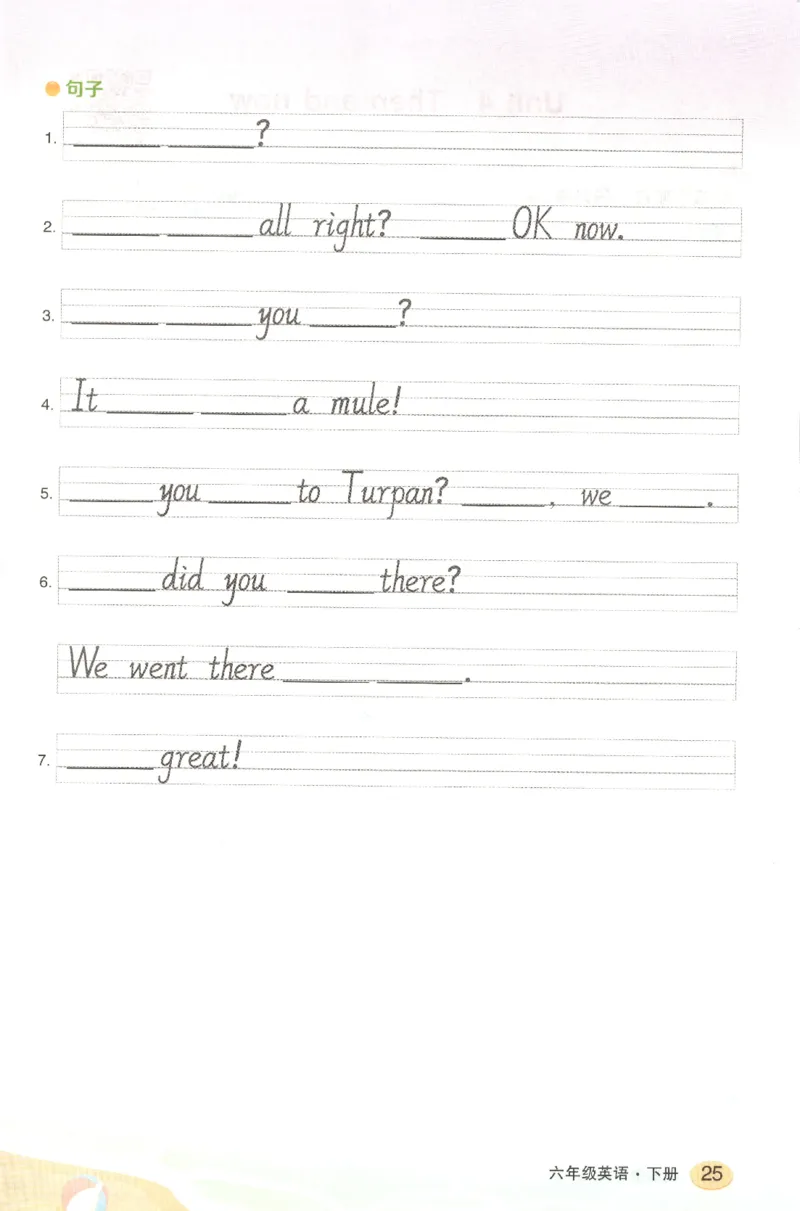 句子
1. ?
2. all right? OK now.
3. you ?
4. It a mule!
5. you to Turpan? , we .
6. did you there?
We went there .
7. great!
六年级英语·下册 25